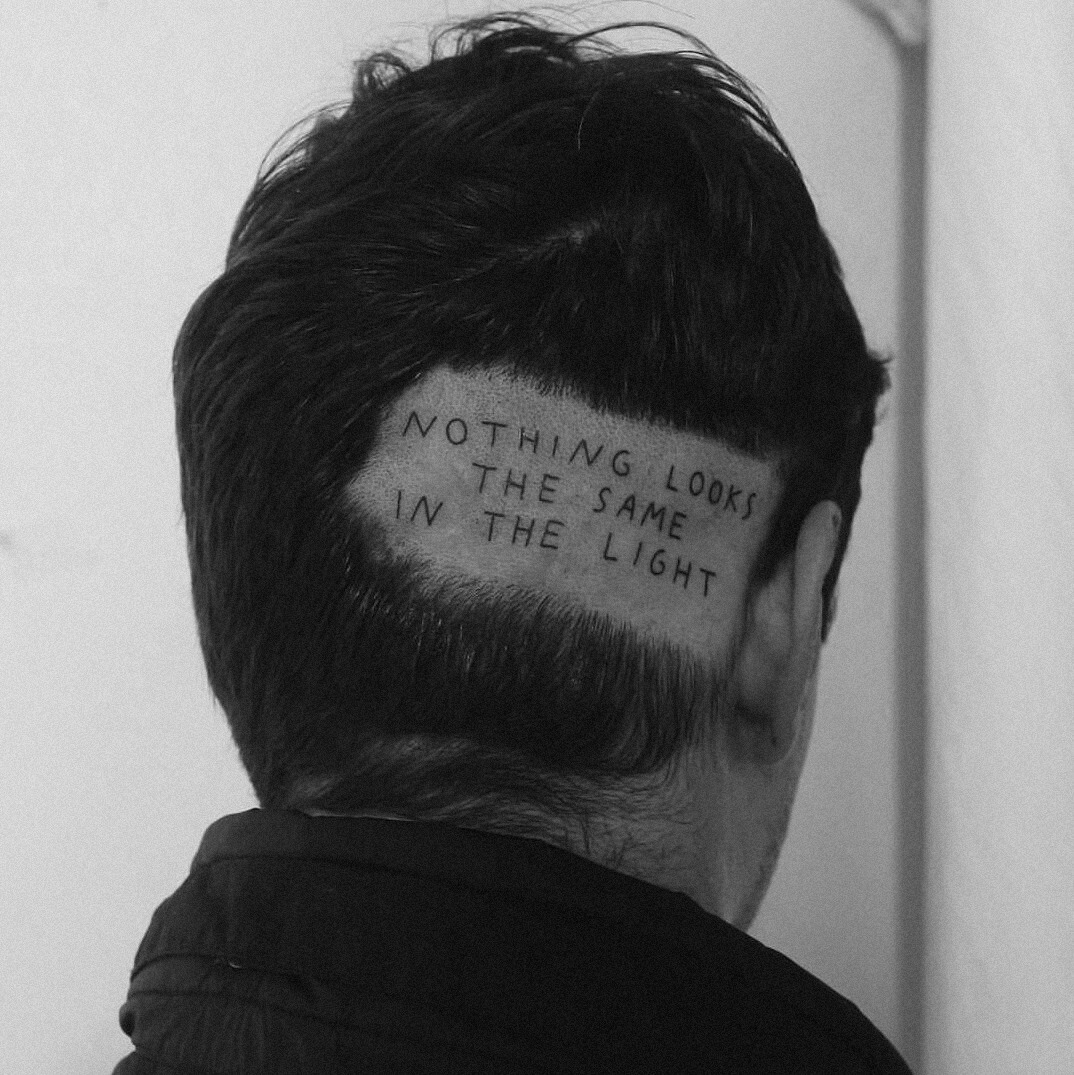 NOTHING LOOKS
THE SAME
IN THE LIGHT